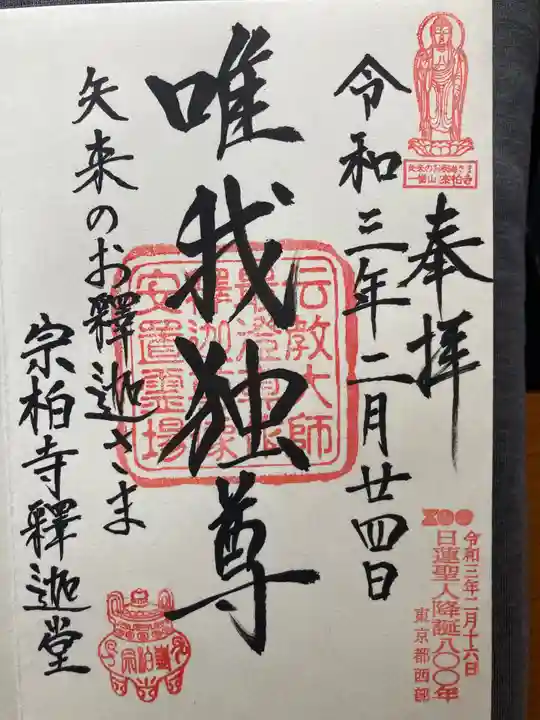 矢来のお釈迦さま
一樹山 宗柏寺
奉拝
令和三年二月廿四日
唯我独尊
伝教大師
最澄尊作
釋迦尊像
安置霊場
矢来のお釋迦さま
宗柏寺釋迦堂
800
令和三年二月十六日
日蓮聖人降誕八〇〇年
東京都西部